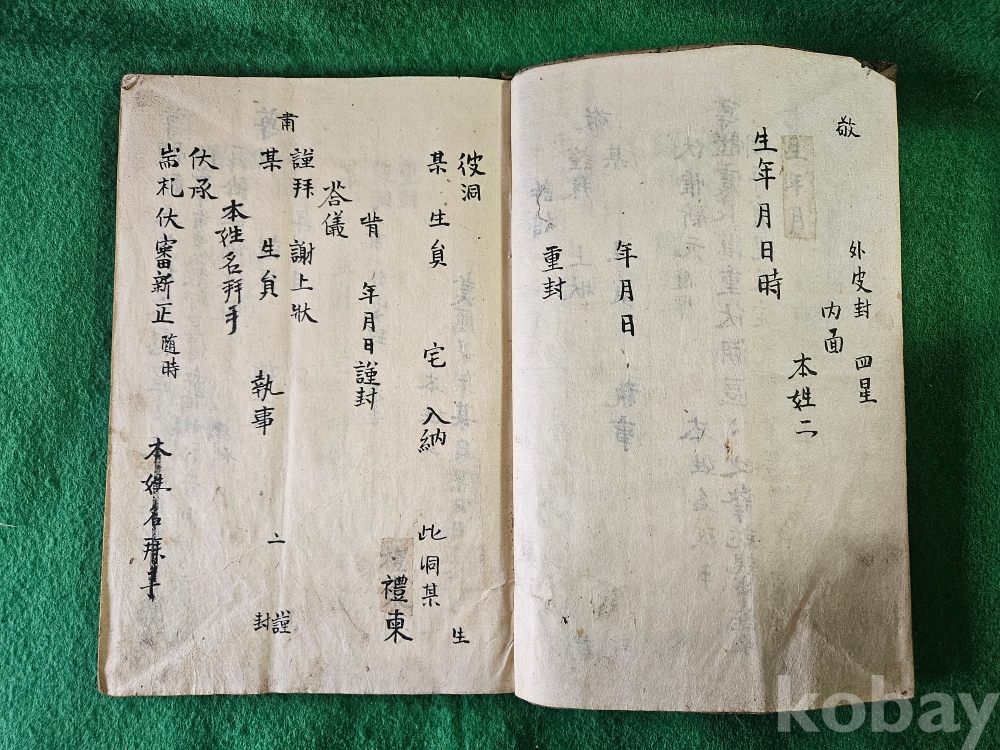 敬
外皮封 四星
內面
本姓二
生年月日時
年月日
重封
彼洞
某生員 宅 入納 此洞某
生
禮柬
背 年月日謹封
答儀
謹拜 謝上狀
某 生員 執事 二
謹封
本姓名拜手
伏承
耑札 伏審新正 随時
本姓名拜手
kobay